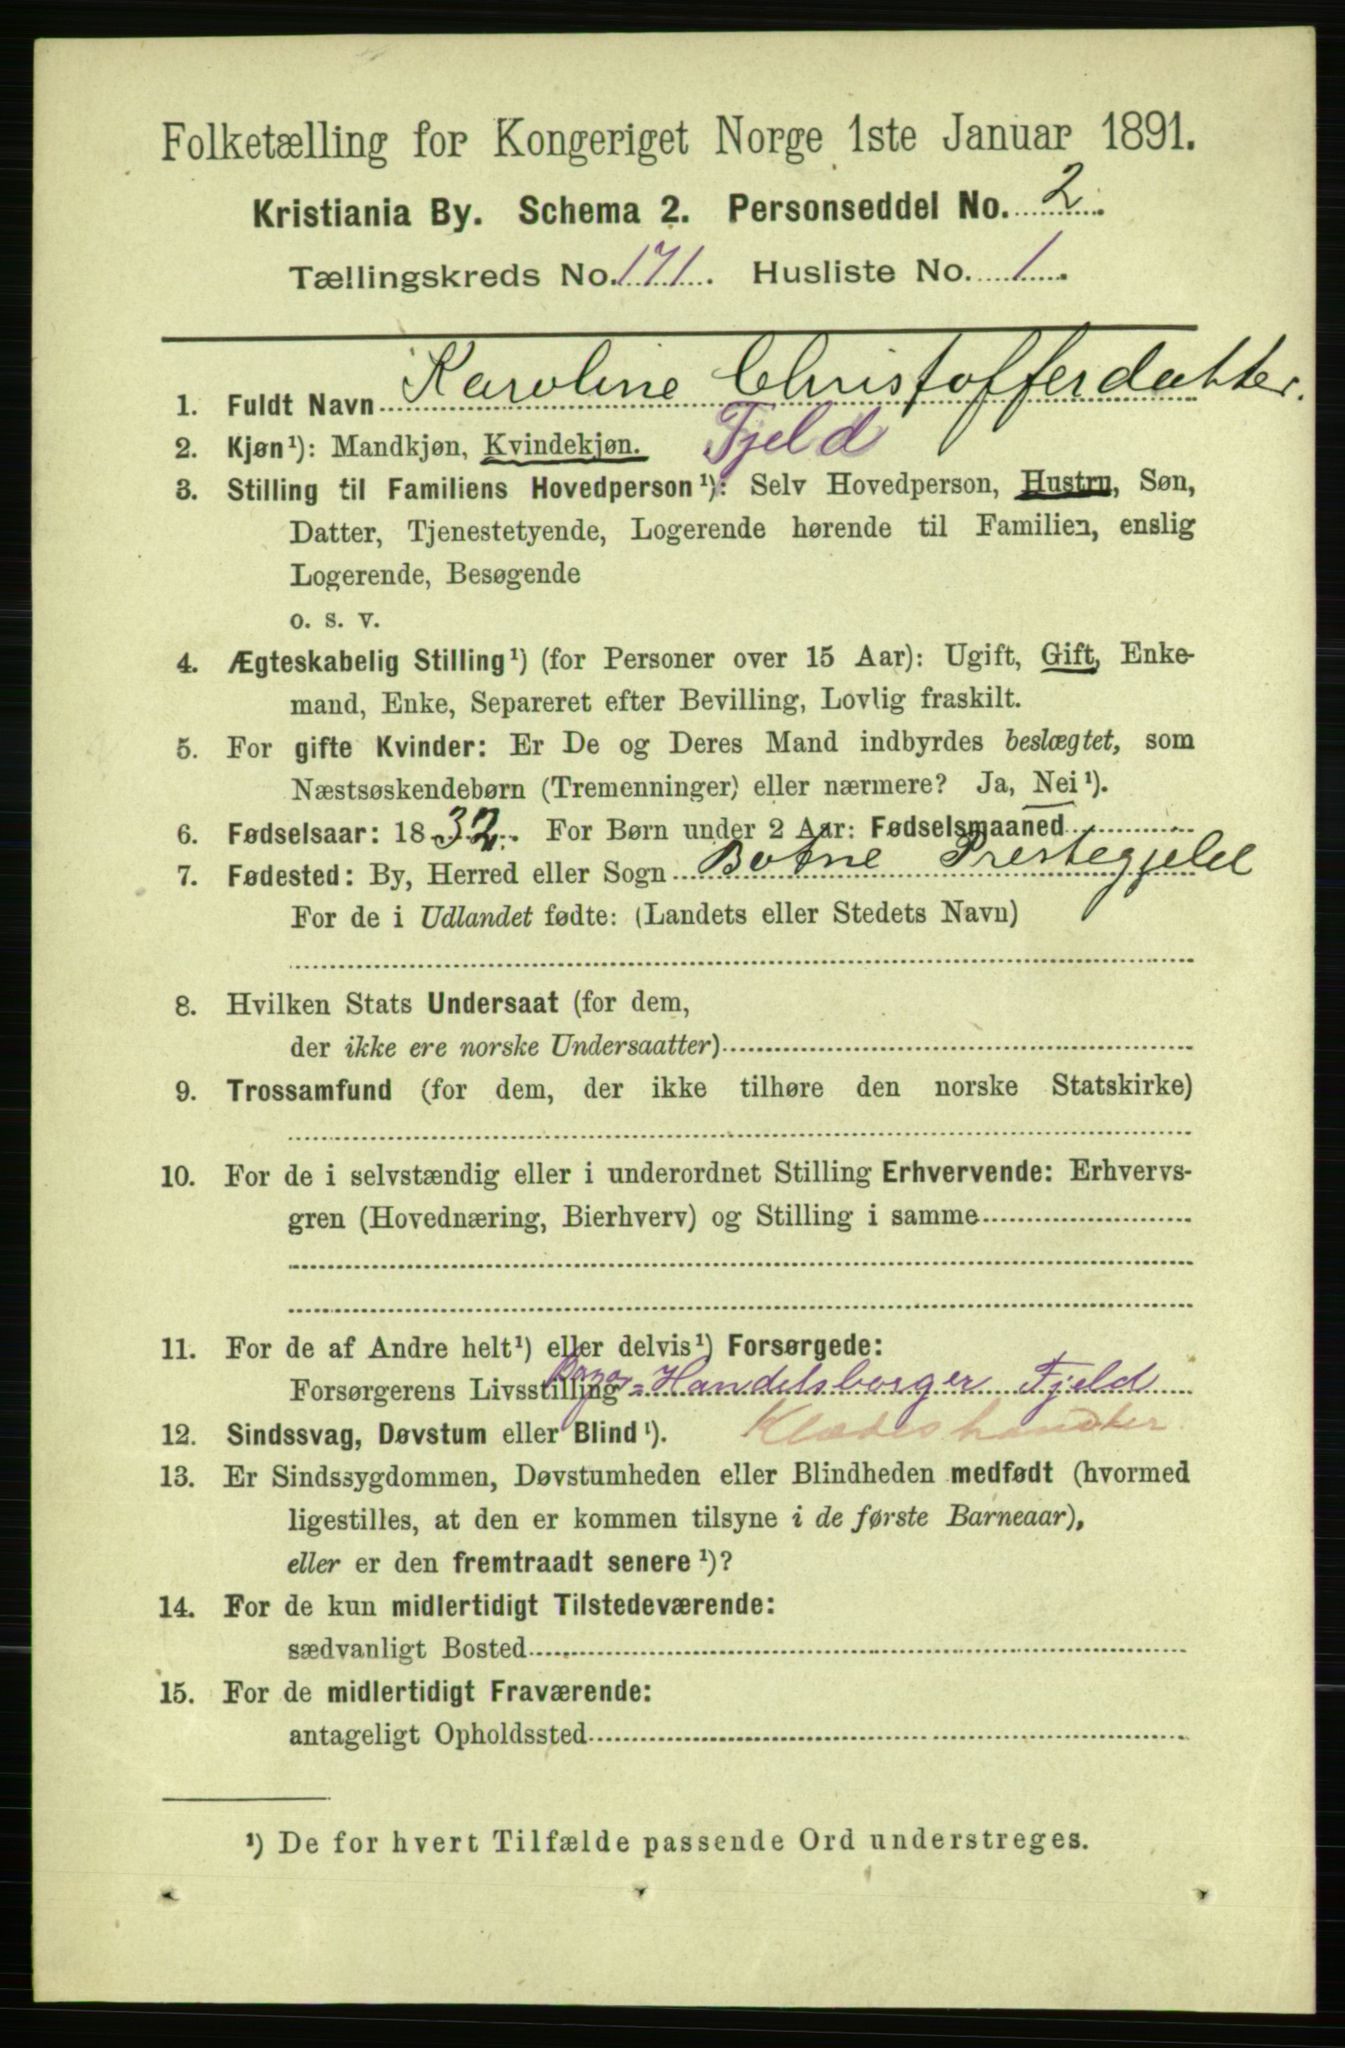 Folketælling for Kongeriget Norge 1ste Januar 1891.
Kristiania By. Schema 2. Personseddel No. 2.
Tællingskreds No. 171. Husliste No. 1.
1. Fuldt Navn Karoline Christofferdatter.
Fjeld
2. Kjøn¹): Mandkjøn, Kvindekjøn.
3. Stilling til Familiens Hovedperson¹): Selv Hovedperson, Hustru, Søn,
Datter, Tjenestetyende, Logerende hørende til Familien, enslig
Logerende, Besøgende
o. s. v.
4. Ægteskabelig Stilling¹) (for Personer over 15 Aar): Ugift, Gift, Enke-
mand, Enke, Separeret efter Bevilling, Lovlig fraskilt.
5. For gifte Kvinder: Er De og Deres Mand indbyrdes beslægtet, som
Næstsøskendebørn (Tremenninger) eller nærmere? Ja, Nei¹).
6. Fødselsaar: 1832. For Børn under 2 Aar: Fødselsmaaned
7. Fødested: By, Herred eller Sogn Botne Prestegjeld
For de i Udlandet fødte: (Landets eller Stedets Navn)
8. Hvilken Stats Undersaat (for dem,
der ikke ere norske Undersaatter)
9. Trossamfund (for dem, der ikke tilhøre den norske Statskirke)
10. For de i selvstændig eller i underordnet Stilling Erhvervende: Erhvervs-
gren (Hovednæring, Bierhverv) og Stilling i samme
11. For de af Andre helt¹) eller delvis¹) Forsørgede:
Forsørgerens Livsstilling Handelsborger Fjeld
Klædeshandler
12. Sindssvag, Døvstum eller Blind¹).
13. Er Sindssygdommen, Døvstumheden eller Blindheden medfødt (hvormed
ligestilles, at den er kommen tilsyne i de første Barneaar),
eller er den fremtraadt senere¹)?
14. For de kun midlertidigt Tilstedeværende:
sædvanligt Bosted
15. For de midlertidigt Fraværende:
antageligt Opholdssted
¹) De for hvert Tilfælde passende Ord understreges.